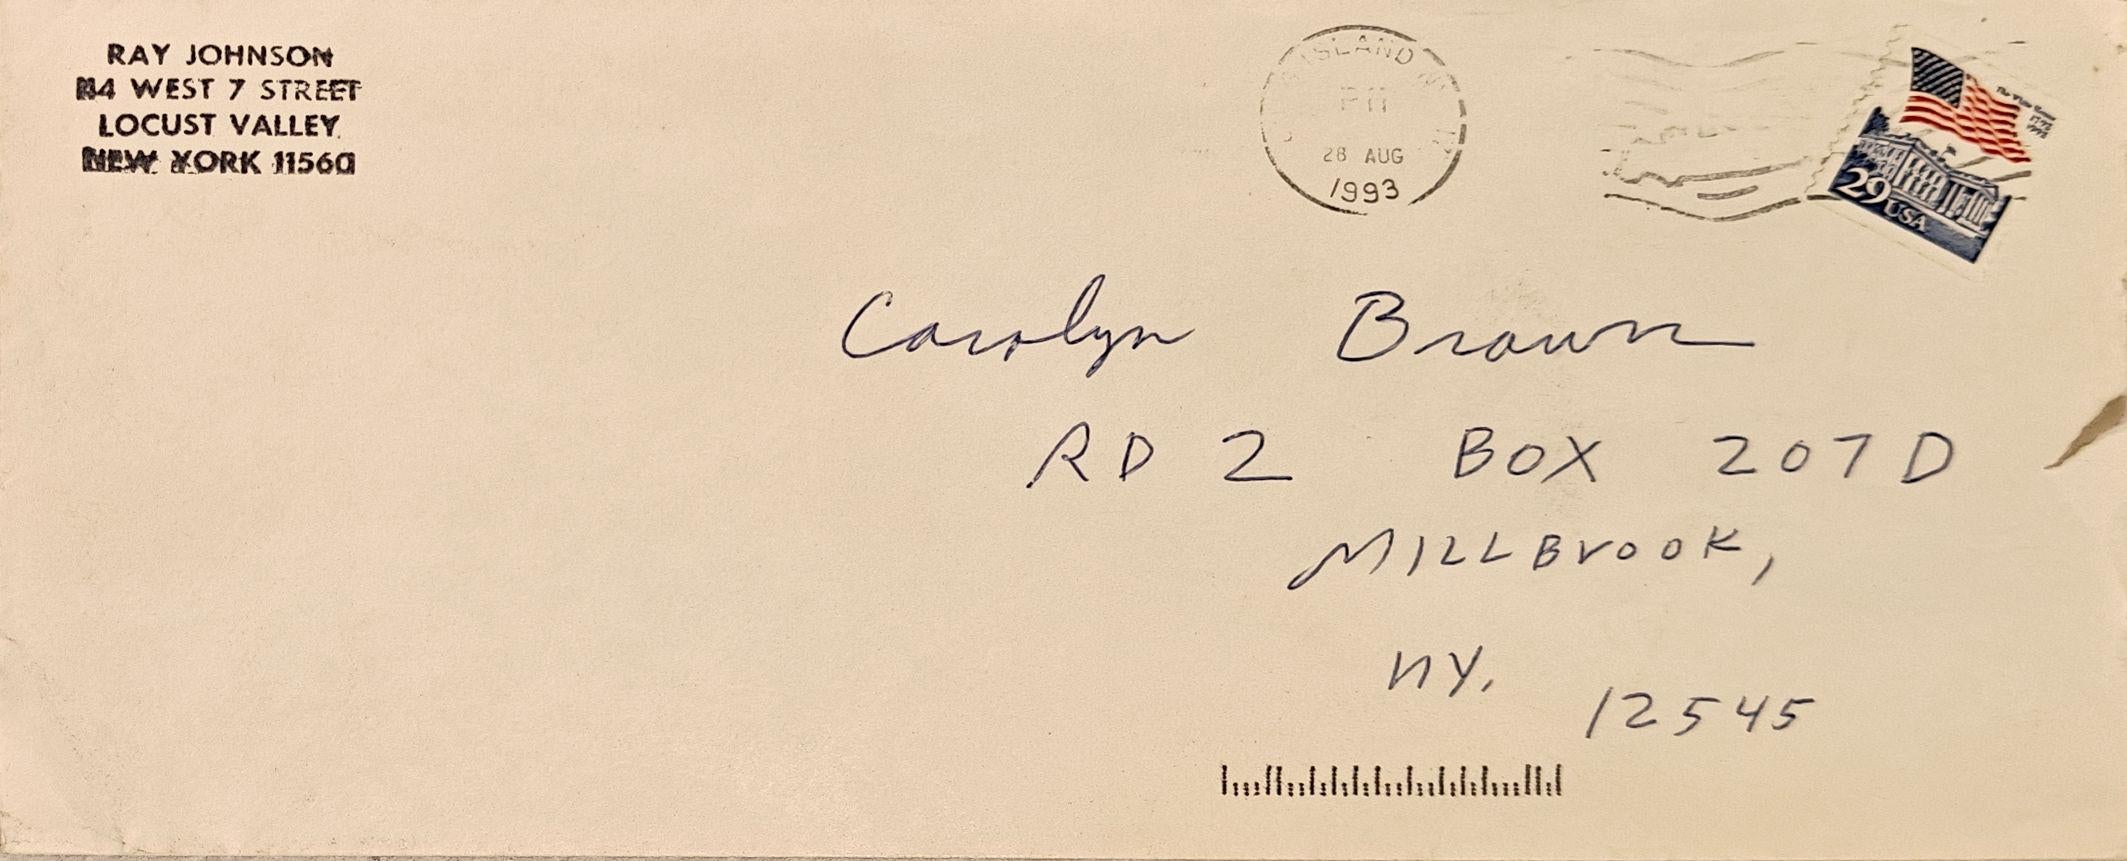 RAY JOHNSON
44 WEST 7 STREET
LOCUST VALLEY
NEW YORK 11560
ISLAND
28 AUG
1993
The White House
29 USA
Carolyn Brown
RD 2 BOX 207 D
MILLBrook,
NY. 12545